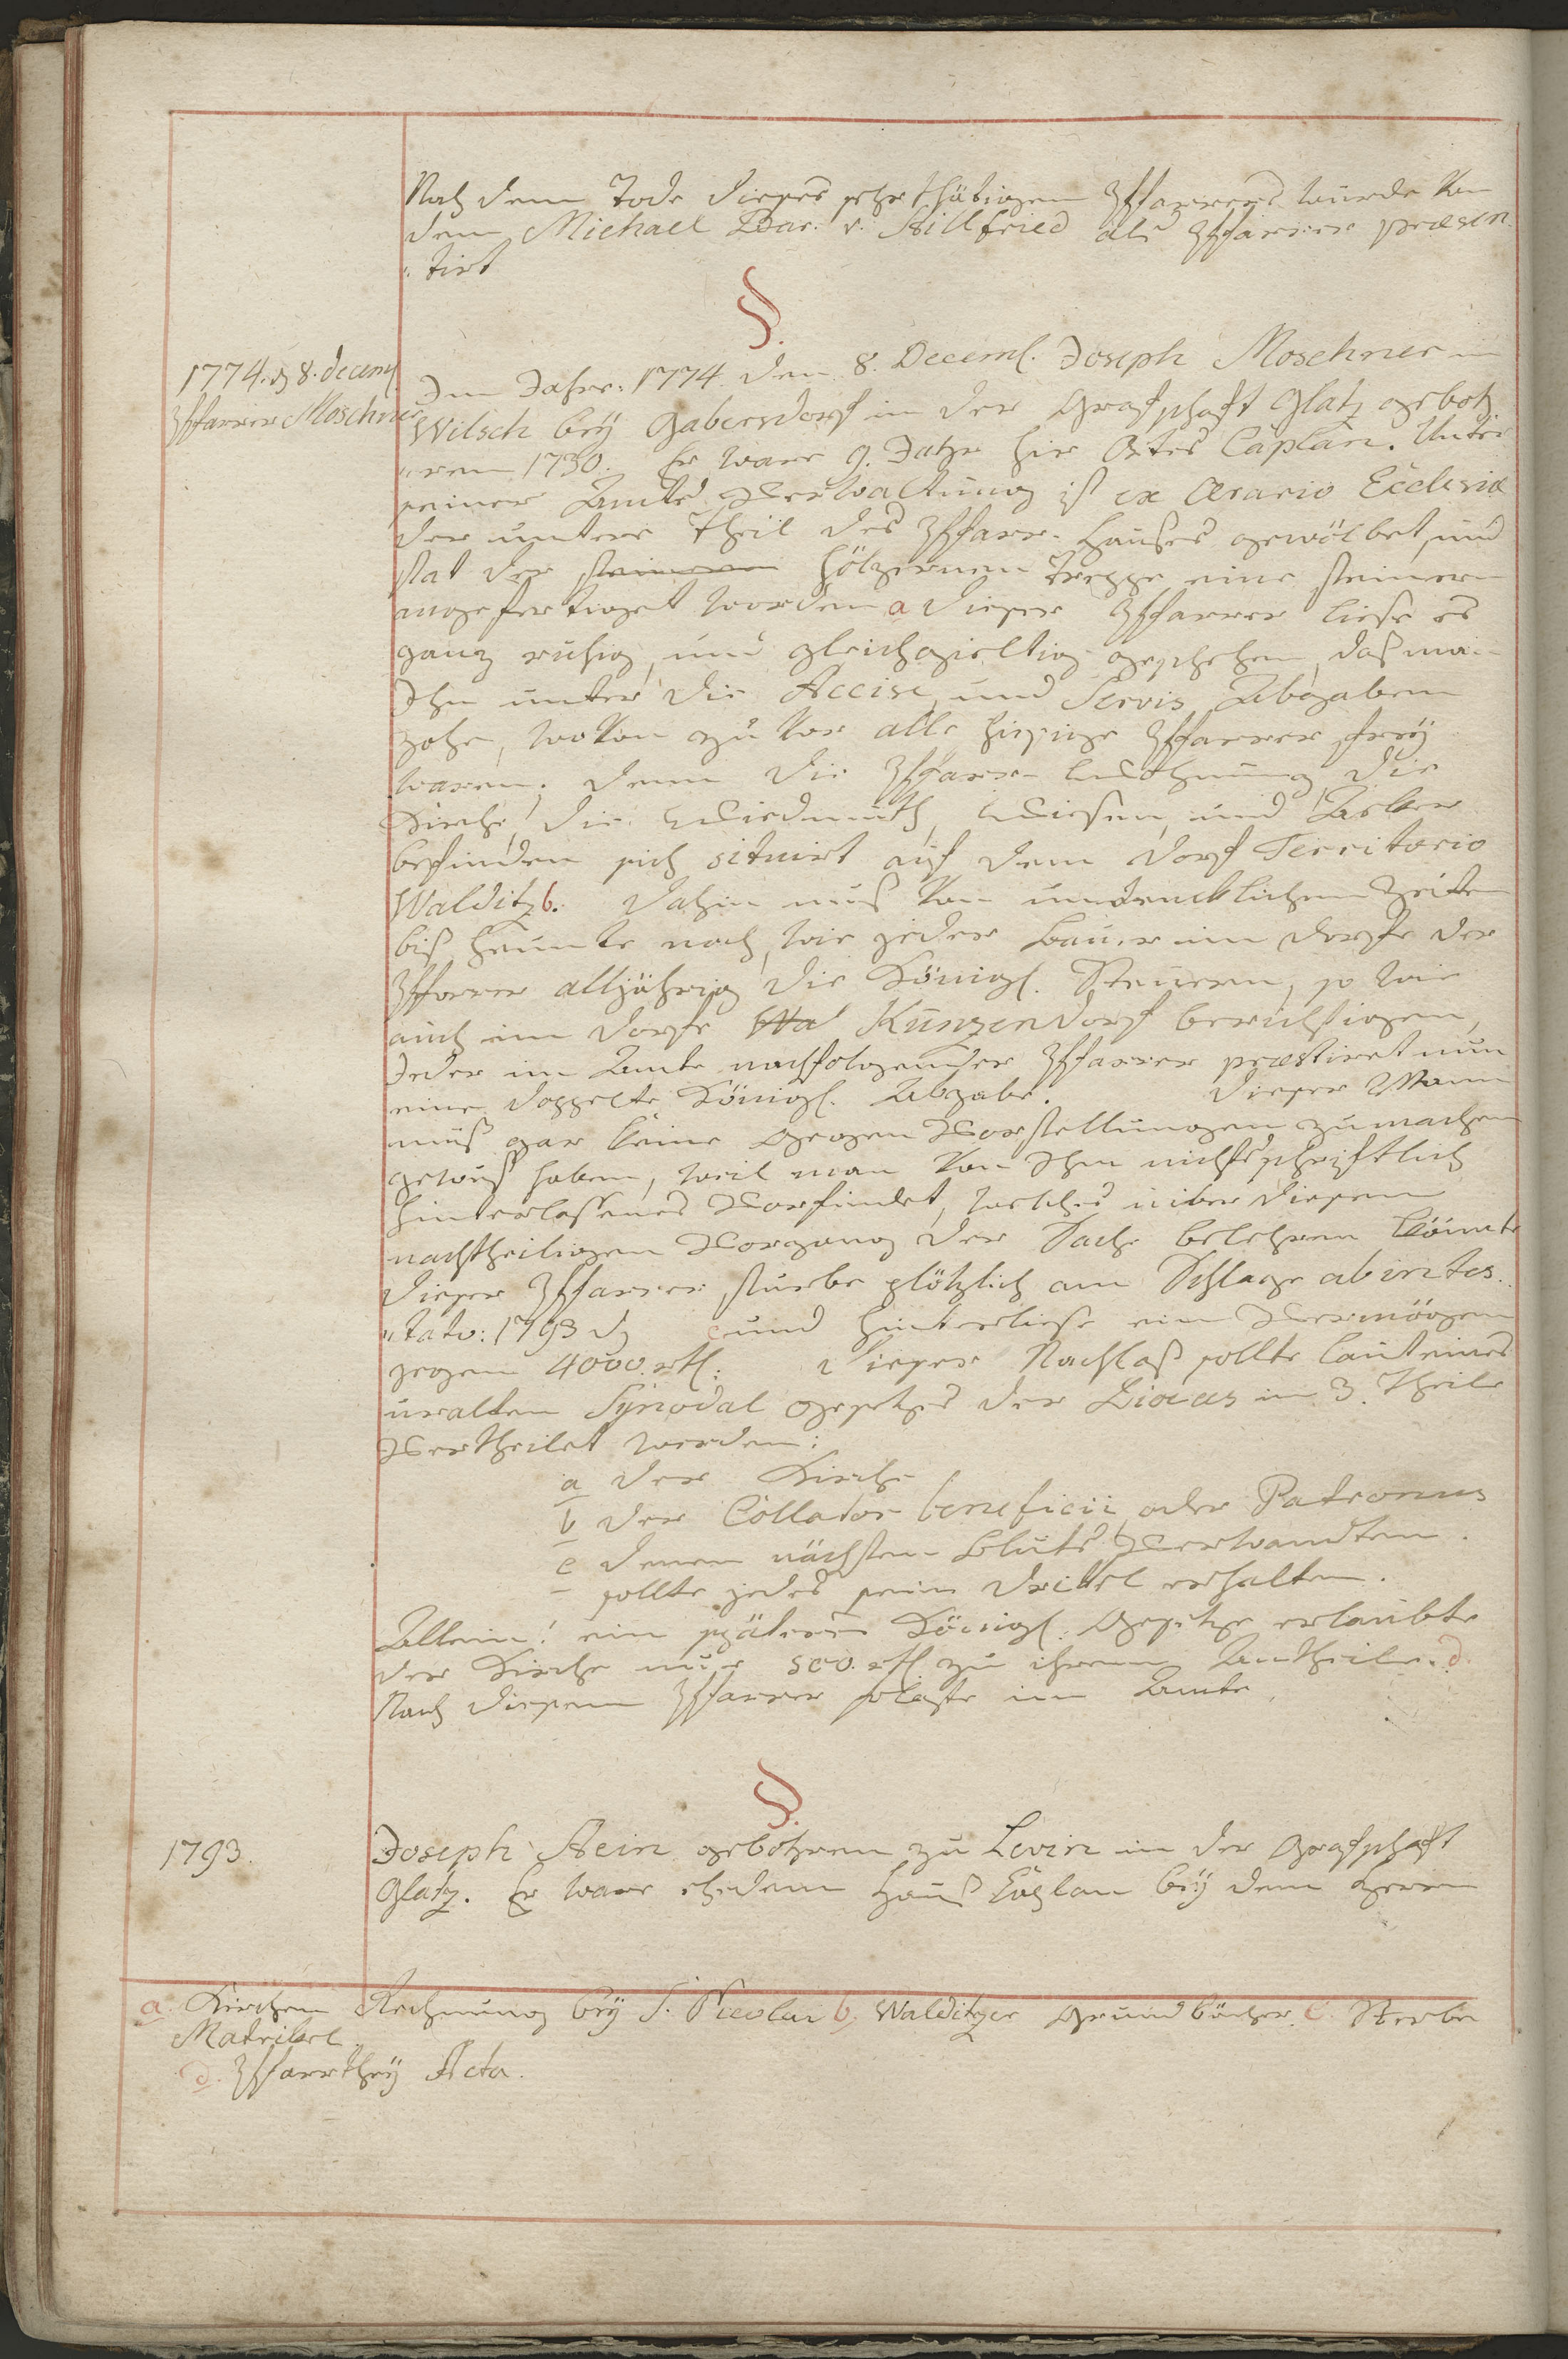 Nach dem Tode dieses sehr thätigen Pfarrers wurde von
dem Michael Bar. v. Stillfried als Pfarrer præsen
"tirt
§.
1774. d 8. decem
Pfarrer Moschner
Im Jahre: 1774. den 8. Decem. Joseph Moschner in
Wilsch beÿ Gabersdorf in der Grafschaft Glatz geboh
"ren 1730. Er ware 9. Jahr hir Ortes Caplan. Unter
seiner Amts Verwaltung ist ex Ærario Ecclesiæ
der untere Theil des Pfarr-Hauses gewölbet, und
stat der steinernen hölzernen Treppe eine steinern
angefertiget worden a dieser Pfarrer liese es
ganz ruhig, und gleichgieltig geschehen, daß man
Ihn unter die Accise, und Servis Abgaben
zohe, wovon zu vor alle hiesige Pfarrer freÿ
waren; denn die Pfarr-Wohnung, die
Kirche, die Wiedmuth, Wiesen, und Äcker
befinden sich situirt auf dem Dorf Territorio
Walditz b. dahin mus von undencklichen Zeiten
bis heunte noch, wie jeder Bauer im Dorfe der
Pfarrer alljährig die Königl. Steuern, so wie
auch im Dorfe Wal Kunzendorf berichtigen,
Jeder im Amte nachfolgender Pfarrer præstiret nun
eine doppelte Königl. Abgabe. Dieser Mann
muß gar keine Gegen Vorstellungen zu machen
gewust haben, weil man von Ihm nichts schriftlich
hinterlassenes Vorfindet, welches über diesen
nachtheiligen Vorgang der Sache belehren könnte
Dieser Pfarrer sturbe plötzlich am Schlage ab intes
"tato: 1793 d c und hinterliese ein Vermögen
gegen 4000. rtl: Dieser Nachlaß sollte laut eines
uralten Sÿnodal Gesetzes der Diæces in 3. Theile
Vertheilet werden:
a der Kirche
b der Collator beneficii, oder Patronus
c denen nächsten Bluts Verwandten.
sollte jedes sein drittel erhalten.
Allein! ein späteres Königl: Gesetze erlaubte
der Kirche nur 500. rtl zu ihrem Antheile. d.
Nach diesem Pfarrer folgte im Amte,
§.
1793.
Joseph Stein gebohren zu Levin in der Grafschaft
Glatz. Er ware ehedem Hauß Caplan beÿ dem Herrn
a. Kirchen Rechnung beÿ S. Nicolai b. Walditzer Grundbücher. c. Sterbe
Matrikel
d. Pfarrtheÿ Acta.